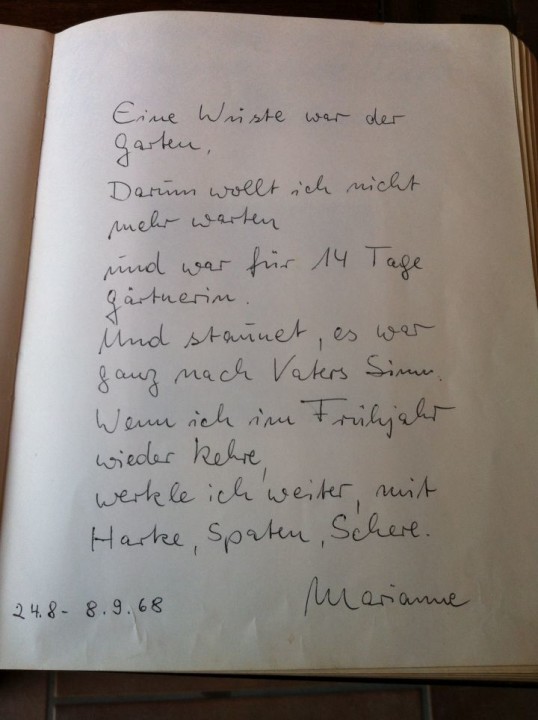 Eine Wüste war der
Garten,
Darum wollt ich nicht
mehr warten
und war für 14 Tage
Gärtnerin.
Und staunet, es war
ganz nach Vaters Sinn.
Wenn ich im Frühjahr
wieder kehre,
werkle ich weiter, mit
Harke, Spaten, Schere.
Marianne
24.8- 8.9.68